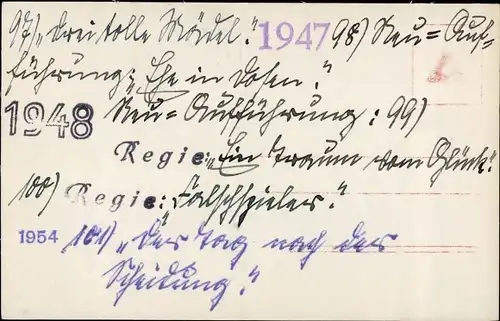 97) „Drei tolle Mädel." 1947 98) Neu=Auf-
führung: „Ehe in Dosen."
1948 Neu=Aufführung: 99)
Regie: „Ein Traum vom Glück."
100) Regie: „Falschspieler."
1954 101) „Der Tag nach der
Scheidung."